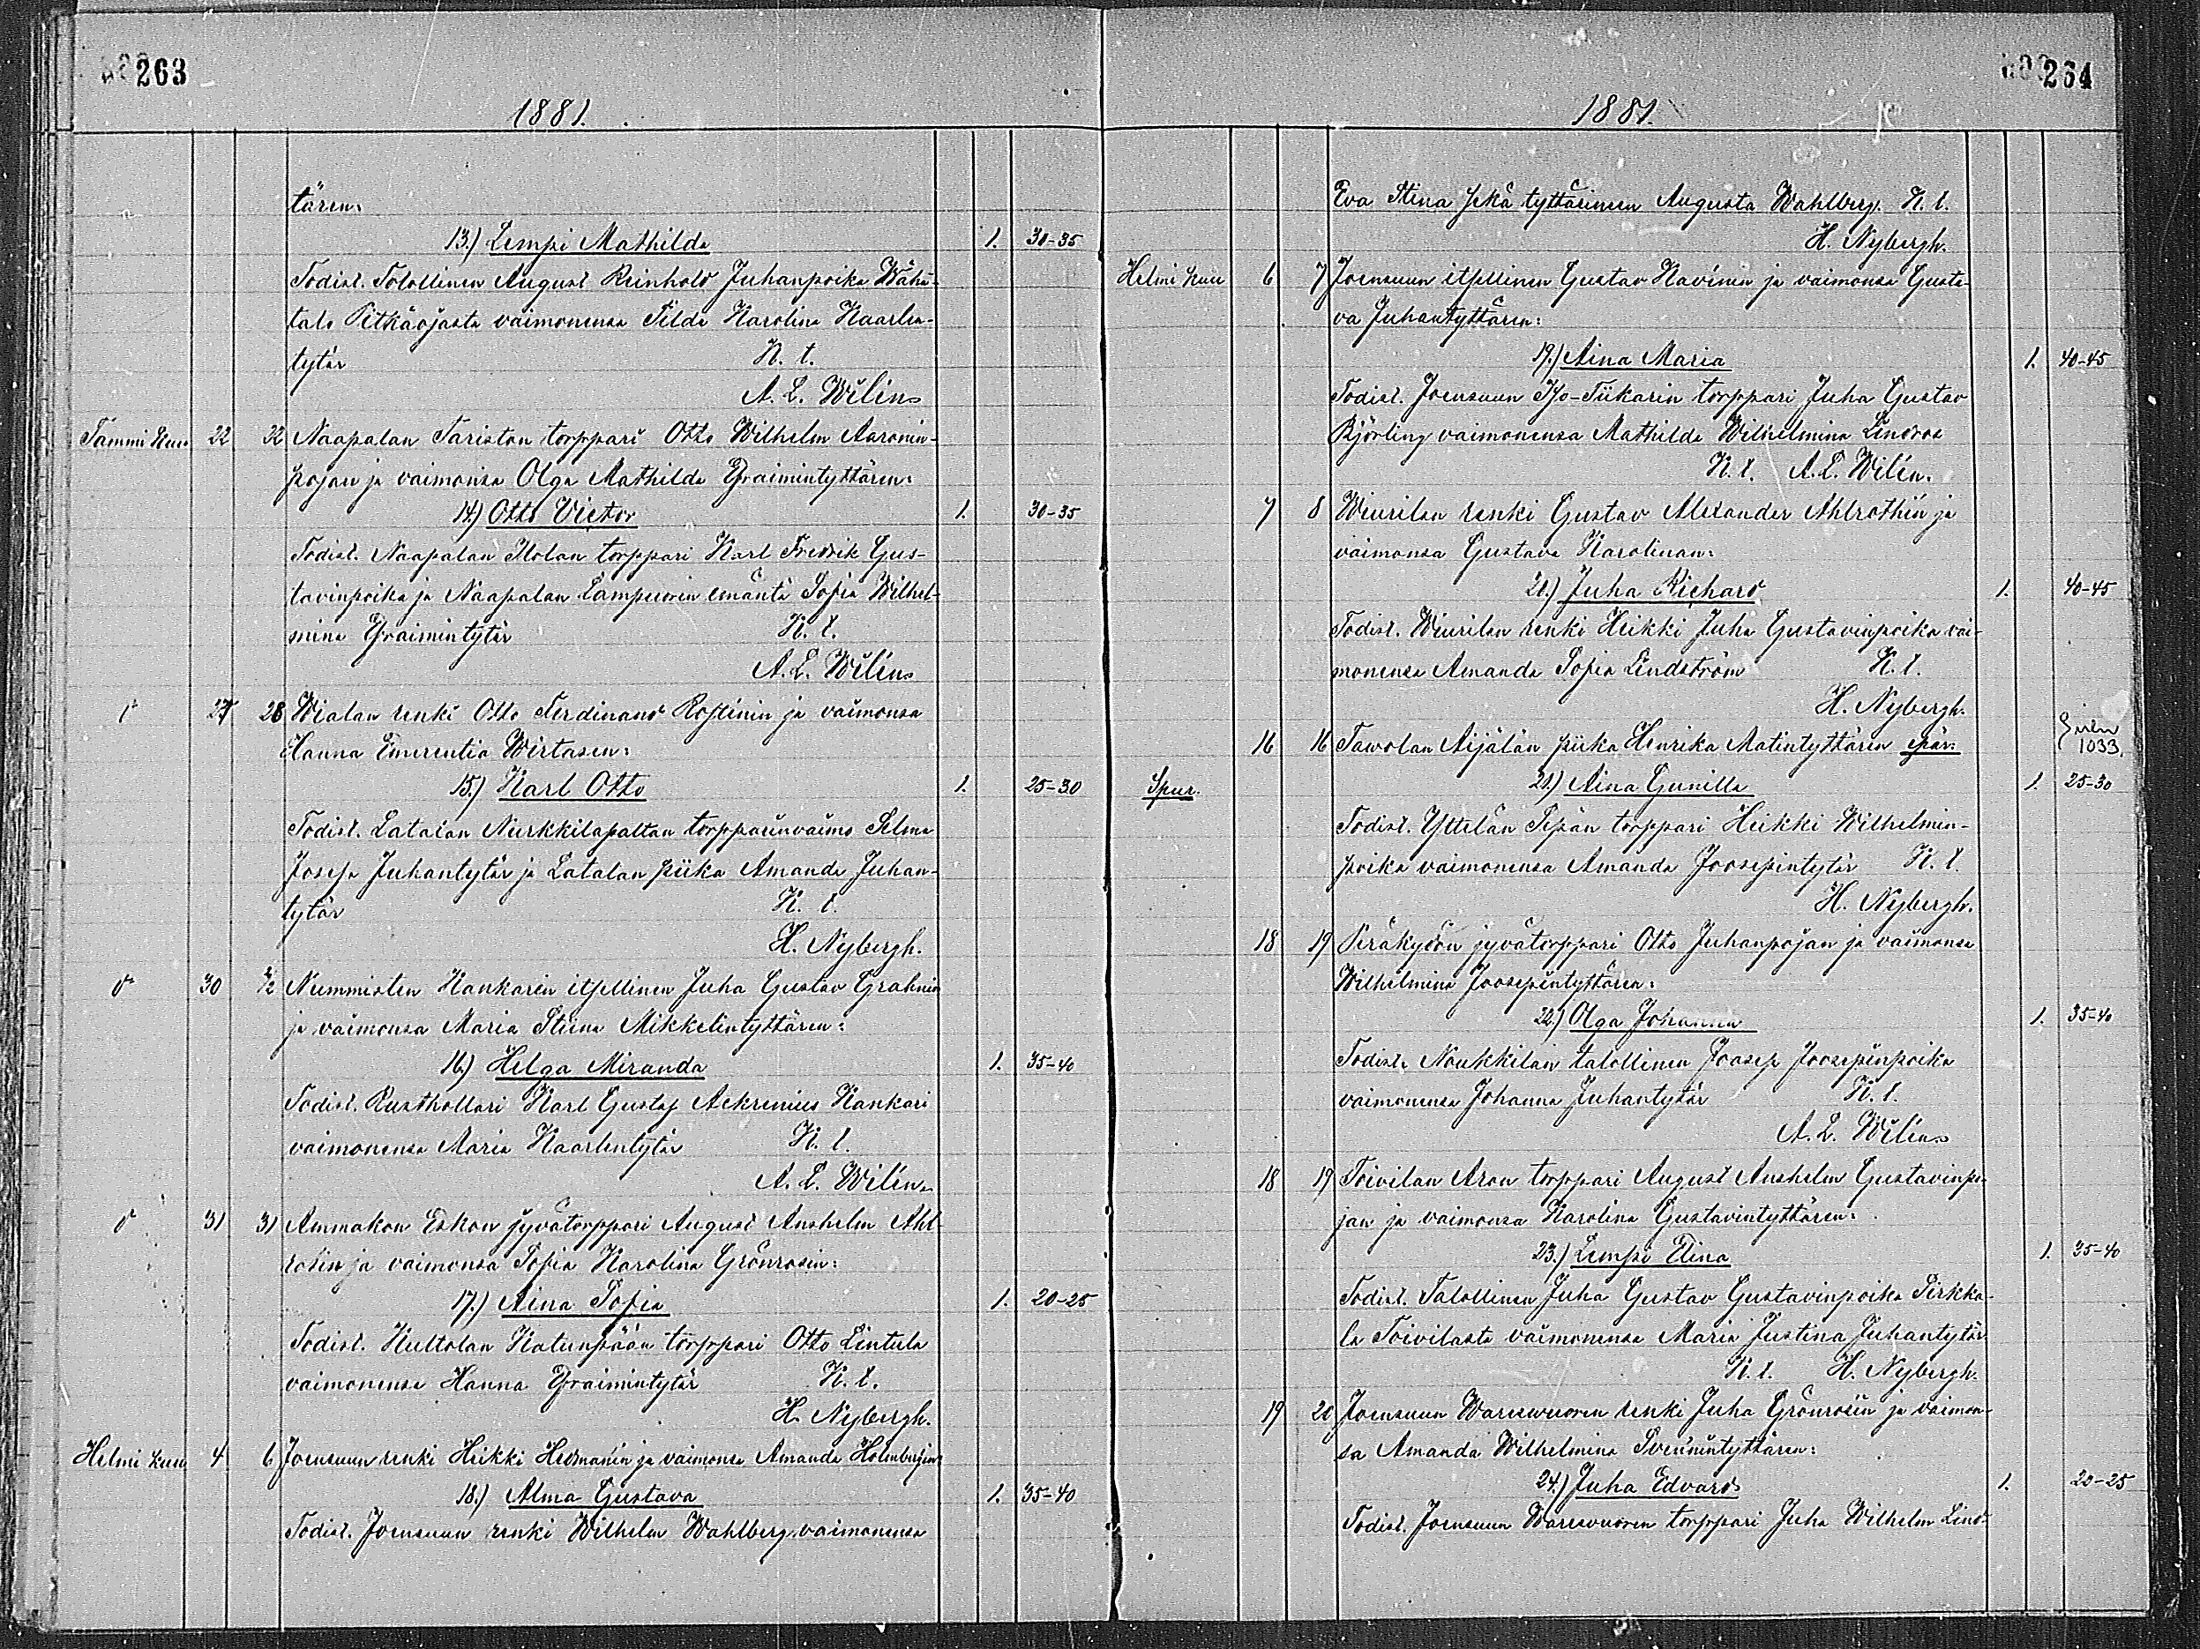 263
1881.
tären:
13.) Lempi Mathilda 1. 30-35
Todist. Talollinen August Reinhold Juhanpoika Wäha-
talo Pitkäojasta vaimonensa Tilda Karolina Kaarlen-
tytär K. t.
A. L. Wilén.
Tammi kuu 22 22 Naapalan Tariston torppari Otto Wilhelm Aaronin-
pojan ja vaimonsa Olga Mathilda Efraimintyttären:
14.) Otto Victor 1. 30-35
Todist. Naapalan Ilolan torppari Karl Fredrik Gus-
tavinpoika ja Naapalan Lampuorin emäntä Sofia Wilhel-
mina Efraimintytär K. t.
A. L. Wilén.
27 28 Wialan renki Otto Ferdinand ja vaimonsa
Hanna Emerentia Wirtasen:
15.) Karl Otto 1. 25-30
Todist. Latalan Nurkkilapaltan torpparinvaimo Selma
Josefa Juhantytär ja Latalan piika Amanda Juhan-
tytär K. t.
H. Nybergh.
30 1/2 Nummisten Kankarin itsellinen Juha Gustav Grahnin
ja vaimonsa Maria Stiina Mikkelintyttären:
16.) Helga Miranda 1. 35-40
Todist. Rusthollari Karl Gustaf Ackrenius Kankari
vaimonensa Maria Kaarlentytär K. t.
A. L. Wilén.
31 31 Ammakon Eskon jyvätorppari August Anshelm Ahl-
rosin ja vaimonsa Sofia Karolina Grönrosin:
17.) Aina Sofia 1. 20-25
Todist. Hultolan Katunpään torppari Otto Lintula
vaimonensa Hanna Efraimintytär K. t.
H. Nybergh.
Helmi kuu 4 6 Joensuun renki Heikki Hedmanin ja vaimonsa Amanda Holmbergin:
18.) Alma Gustava 1. 35-40
Todist. Joensuun renki Wilhelm Wahlberg vaimonensa
264
1881.
Eva Stina sekä tyttärineen Augusta Wahlberg. K. t.
H. Nybergh.
Helmi kuu 6 7 Joensuun itsellinen Gustav Kavinin ja vaimonsa Gusta-
va Juhantyttären:
19.) Aina Maria 1. 40-45
Todist. Joensuun Iso-Tiikarin torppari Juha Gustav
Björling vaimonensa Mathilda Wilhelmina Lindros
K. t. A. L. Wilén.
7 8 Wiurilan renki Gustav Alexander Ahlrothin ja
vaimonsa Gustava Karolinan:
20.) Juha Richard 1. 40-45
Todist. Wiurilan renki Heikki Juha Gustavinpoika vai-
monensa Amanda Sofia Lindström K. t.
H. Nybergh.
16 16 Tawolan Äijälän piika Henrika Matintyttären epär: 1033.
Spur. 21.) Aina Gunilla 1. 25-30
Todist. Yttelän Sepän torppari Heikki Wilhelmin-
poika vaimonensa Amanda Joosepintytär K. t.
H. Nybergh.
18 19 Peräkylön jyvätorppari Otto Juhanpojan ja vaimonsa
Wilhelmina Joosepintyttären:
22.) Olga Johanna 1. 35-40
Todist. Noukkilan talollinen Joosep Joosepinpoika
vaimonensa Johanna Juhantytär K. t.
A. L. Wilén.
18 19 Toivilan Aron torppari August Anshelm Gustavinpo-
jan ja vaimonsa Karolina Gustavintyttären:
23.) Lempi Elina 1. 35-40
Todist. Talollinen Juha Gustav Gustavinpoika Pirkka-
la Toivilasta vaimonensa Maria Justina Juhantytär
K. t. H. Nybergh.
19 20 Joensuun Wareswuoren renki Juha Grönrosin ja vaimon-
sa Amanda Wilhelmina Sveninintyttären:
24.) Juha Edvard 1. 20-25
Todist. Joensuun Wareswuoren torppari Juha Wilhelm Lind-